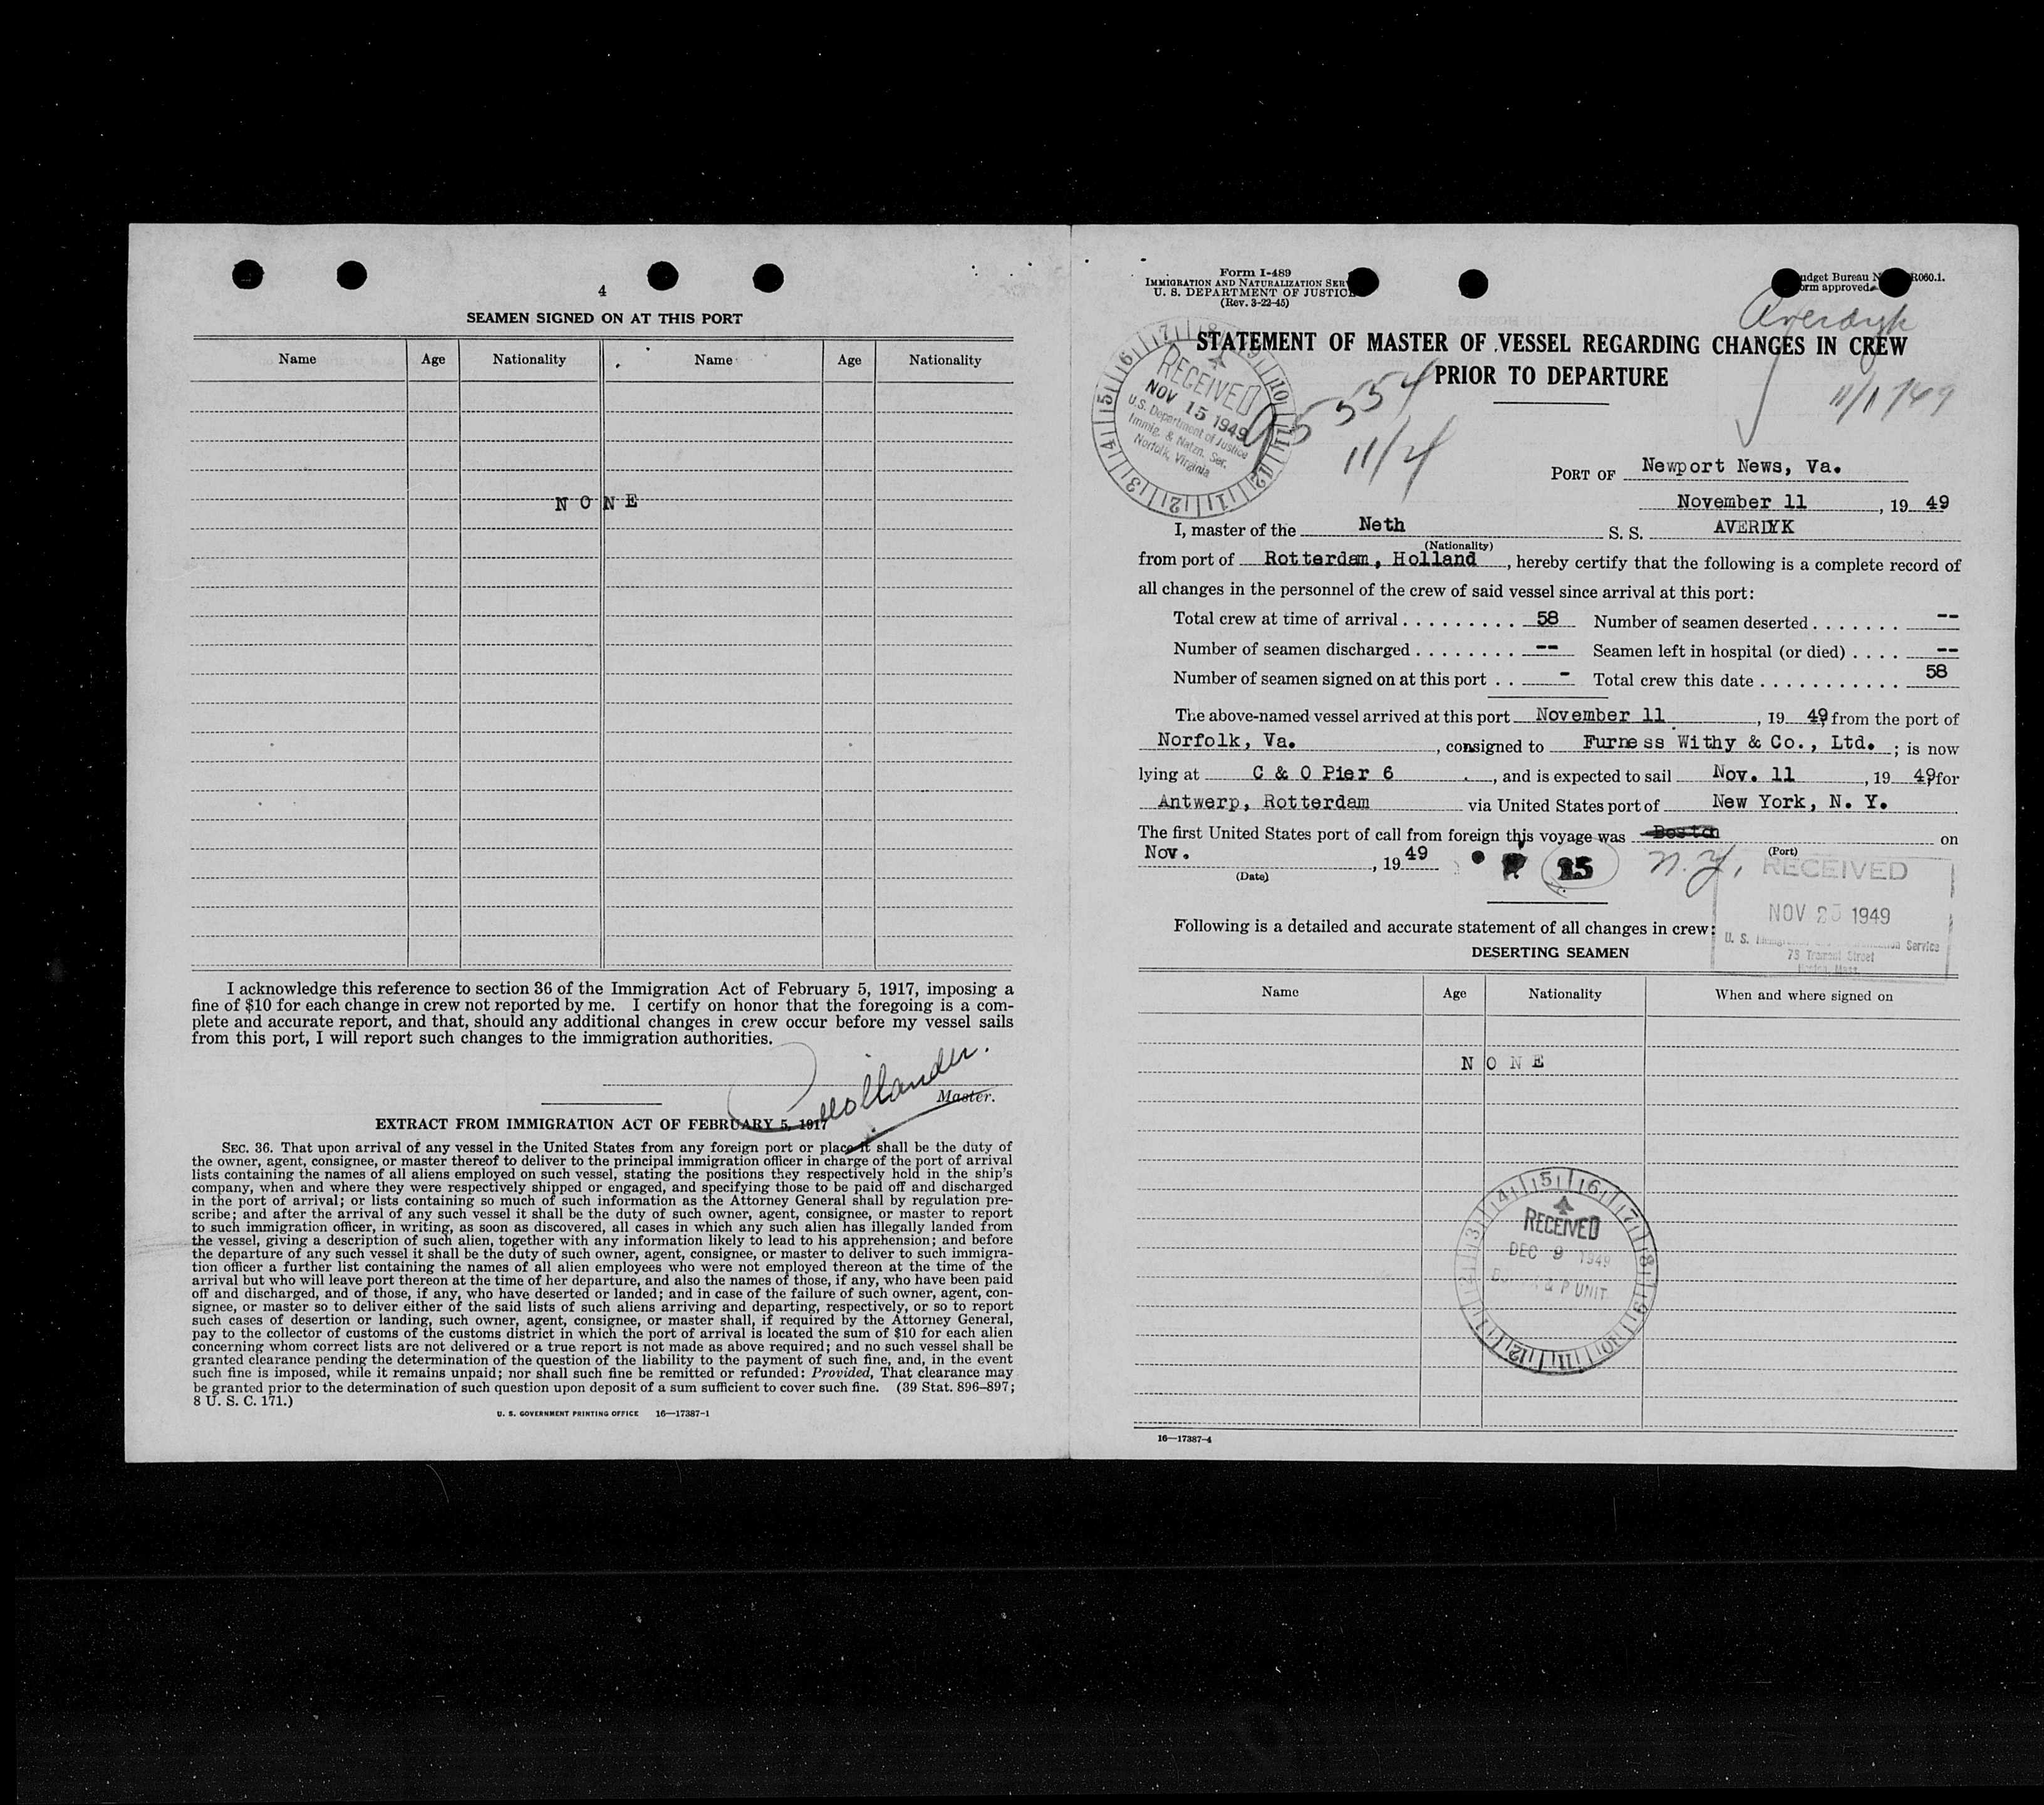 4
SEAMEN SIGNED ON AT THIS PORT
Name Age Nationality Name Age Nationality
N O N E
I acknowledge this reference to section 36 of the Immigration Act of February 5, 1917, imposing a
fine of $10 for each change in crew not reported by me. I certify on honor that the foregoing is a com-
plete and accurate report, and that, should any additional changes in crew occur before my vessel sails
from this port, I will report such changes to the immigration authorities.
Master.
EXTRACT FROM IMMIGRATION ACT OF FEBRUARY 5, 1917
SEC. 36. That upon arrival of any vessel in the United States from any foreign port or place it shall be the duty of
the owner, agent, consignee, or master thereof to deliver to the principal immigration officer in charge of the port of arrival
lists containing the names of all aliens employed on such vessel, stating the positions they respectively hold in the ship's
company, when and where they were respectively shipped or engaged, and specifying those to be paid off and discharged
in the port of arrival; or lists containing so much of such information as the Attorney General shall by regulation pre-
scribe; and after the arrival of any such vessel it shall be the duty of such owner, agent, consignee, or master to report
to such immigration officer, in writing, as soon as discovered, all cases in which any such alien has illegally landed from
the vessel, giving a description of such alien, together with any information likely to lead to his apprehension; and before
the departure of any such vessel it shall be the duty of such owner, agent, consignee, or master to deliver to such immigra-
tion officer a further list containing the names of all alien employees who were not employed thereon at the time of the
arrival but who will leave port thereon at the time of her departure, and also the names of those, if any, who have been paid
off and discharged, and of those, if any, who have deserted or landed; and in case of the failure of such owner, agent, con-
signee, or master so to deliver either of the said lists of such aliens arriving and departing, respectively, or so to report
such cases of desertion or landing, such owner, agent, consignee, or master shall, if required by the Attorney General,
pay to the collector of customs of the customs district in which the port of arrival is located the sum of $10 for each alien
concerning whom correct lists are not delivered or a true report is not made as above required; and no such vessel shall be
granted clearance pending the determination of the question of the liability to the payment of such fine, and, in the event
such fine is imposed, while it remains unpaid; nor shall such fine be remitted or refunded: Provided, That clearance may
be granted prior to the determination of such question upon deposit of a sum sufficient to cover such fine. (39 Stat. 896–897;
8 U. S. C. 171.)
U. S. GOVERNMENT PRINTING OFFICE 16—17387-1
Form I-489
IMMIGRATION AND NATURALIZATION SER
U. S. DEPARTMENT OF JUSTICE
(Rev. 3-22-45)
udget Bureau N R060.1.
orm approved.
Averdyk
STATEMENT OF MASTER OF VESSEL REGARDING CHANGES IN CREW
PRIOR TO DEPARTURE
RECEIVED
NOV 15 1949
U.S. Department of Justice
Immig. & Natzn. Ser.
Norfolk, Virginia
11/4
11/1/49
PORT OF Newport News, Va.
November 11, 19 49
I, master of the Neth S. S. AVERDYK
(Nationality)
from port of Rotterdam, Holland, hereby certify that the following is a complete record of
all changes in the personnel of the crew of said vessel since arrival at this port:
Total crew at time of arrival . . . . . . . . . 58 Number of seamen deserted . . . . . . . --
Number of seamen discharged . . . . . . . . -- Seamen left in hospital (or died) . . . . --
Number of seamen signed on at this port . . - Total crew this date . . . . . . . . . . . 58
The above-named vessel arrived at this port November 11, 19 49, from the port of
Norfolk, Va., consigned to Furness Withy & Co., Ltd.; is now
lying at C & O Pier 6, and is expected to sail Nov. 11, 19 49, for
Antwerp, Rotterdam via United States port of New York, N. Y.
The first United States port of call from foreign this voyage was Boston on
(Port)
Nov., 19 49 15 N.Y.
(Date)
RECEIVED
NOV 1949
U. S. Service
75 Tremont Street
Boston, Mass.
Following is a detailed and accurate statement of all changes in crew:
DESERTING SEAMEN
Name Age Nationality When and where signed on
N O N E
RECEIVED
DEC 9 1949
& P UNIT
16—17387-4